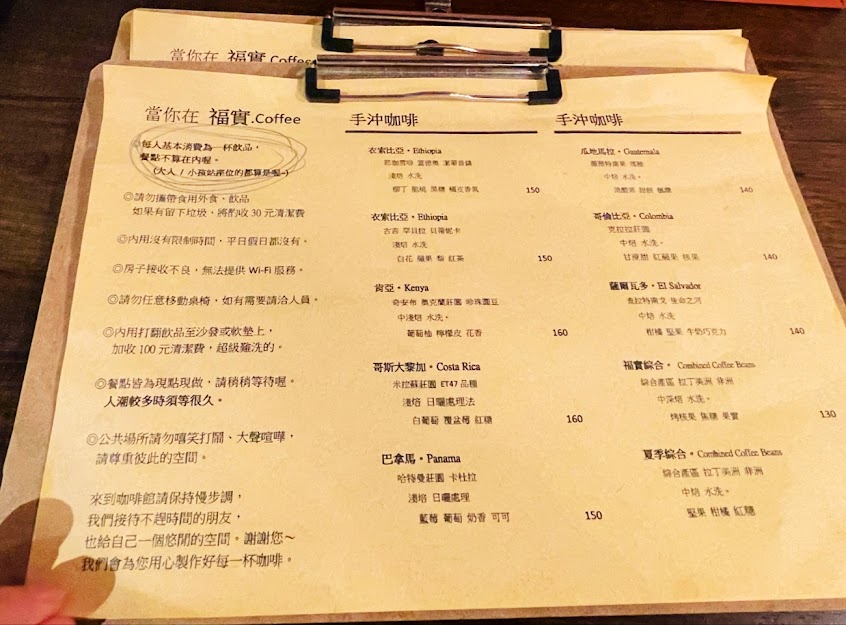 當你在 福實.Coffee
當你在 福實.Coffee
每人基本消費為一杯飲品，
餐點不算在內喔。
(大人 / 小孩站座位的都算是喔~)
◎請勿攜帶食用外食、飲品
如果有留下垃圾，將酌收 30 元清潔費
◎內用沒有限制時間，平日假日都沒有。
◎房子接收不良，無法提供 Wi-Fi 服務。
◎請勿任意移動桌椅，如有需要請洽人員。
◎內用打翻飲品至沙發或軟墊上，
加收 100 元清潔費，超級難洗的。
◎餐點皆為現點現做，請稍稍等待喔。
人潮較多時須等很久。
◎公共場所請勿嘻笑打鬧、大聲喧嘩，
請尊重彼此的空間。
來到咖啡館請保持慢步調，
我們接待不趕時間的朋友，
也給自己一個悠閒的空間。謝謝您～
我們會為您用心製作好每一杯咖啡。
手沖咖啡
衣索比亞。Ethiopia
耶加雪啡 潔蒂普鎮
淺焙 水洗。
柳丁 脆桃 黑糖 橘皮香氣 150
衣索比亞。Ethiopia
古吉 罕貝拉 貝蒂妮卡
淺焙 水洗
白花 蘋果 梨 紅茶 150
肯亞。Kenya
奇安布 奧克蘭莊園 珍珠圓豆
中淺焙 水洗。
葡萄柚 檸檬皮 花香 160
哥斯大黎加。Costa Rica
米拉蘇莊園 ET47 品種
淺焙 日曬處理法
白葡萄 覆盆莓 紅糖 160
巴拿馬。Panama
哈特曼莊園 卡杜拉
淺焙 日曬處理
藍莓 葡萄 奶香 可可 150
手沖咖啡
瓜地馬拉。Guatemala
薇薇特南果
中焙 水洗。
140
哥倫比亞。Colombia
克拉拉莊園
中焙 水洗。
甘蔗甜 紅蘋果 核果 140
薩爾瓦多。El Salvador
查拉特南戈 生命之河
中焙 水洗
柑橘 堅果 牛奶巧克力 140
福實綜合。Combined Coffee Beans
綜合產區 拉丁美洲 非洲
中深焙 水洗。
烤核果 焦糖 果實 130
夏季綜合。Combined Coffee Beans
綜合產區 拉丁美洲 非洲
中焙 水洗。
堅果 柑橘 紅糖